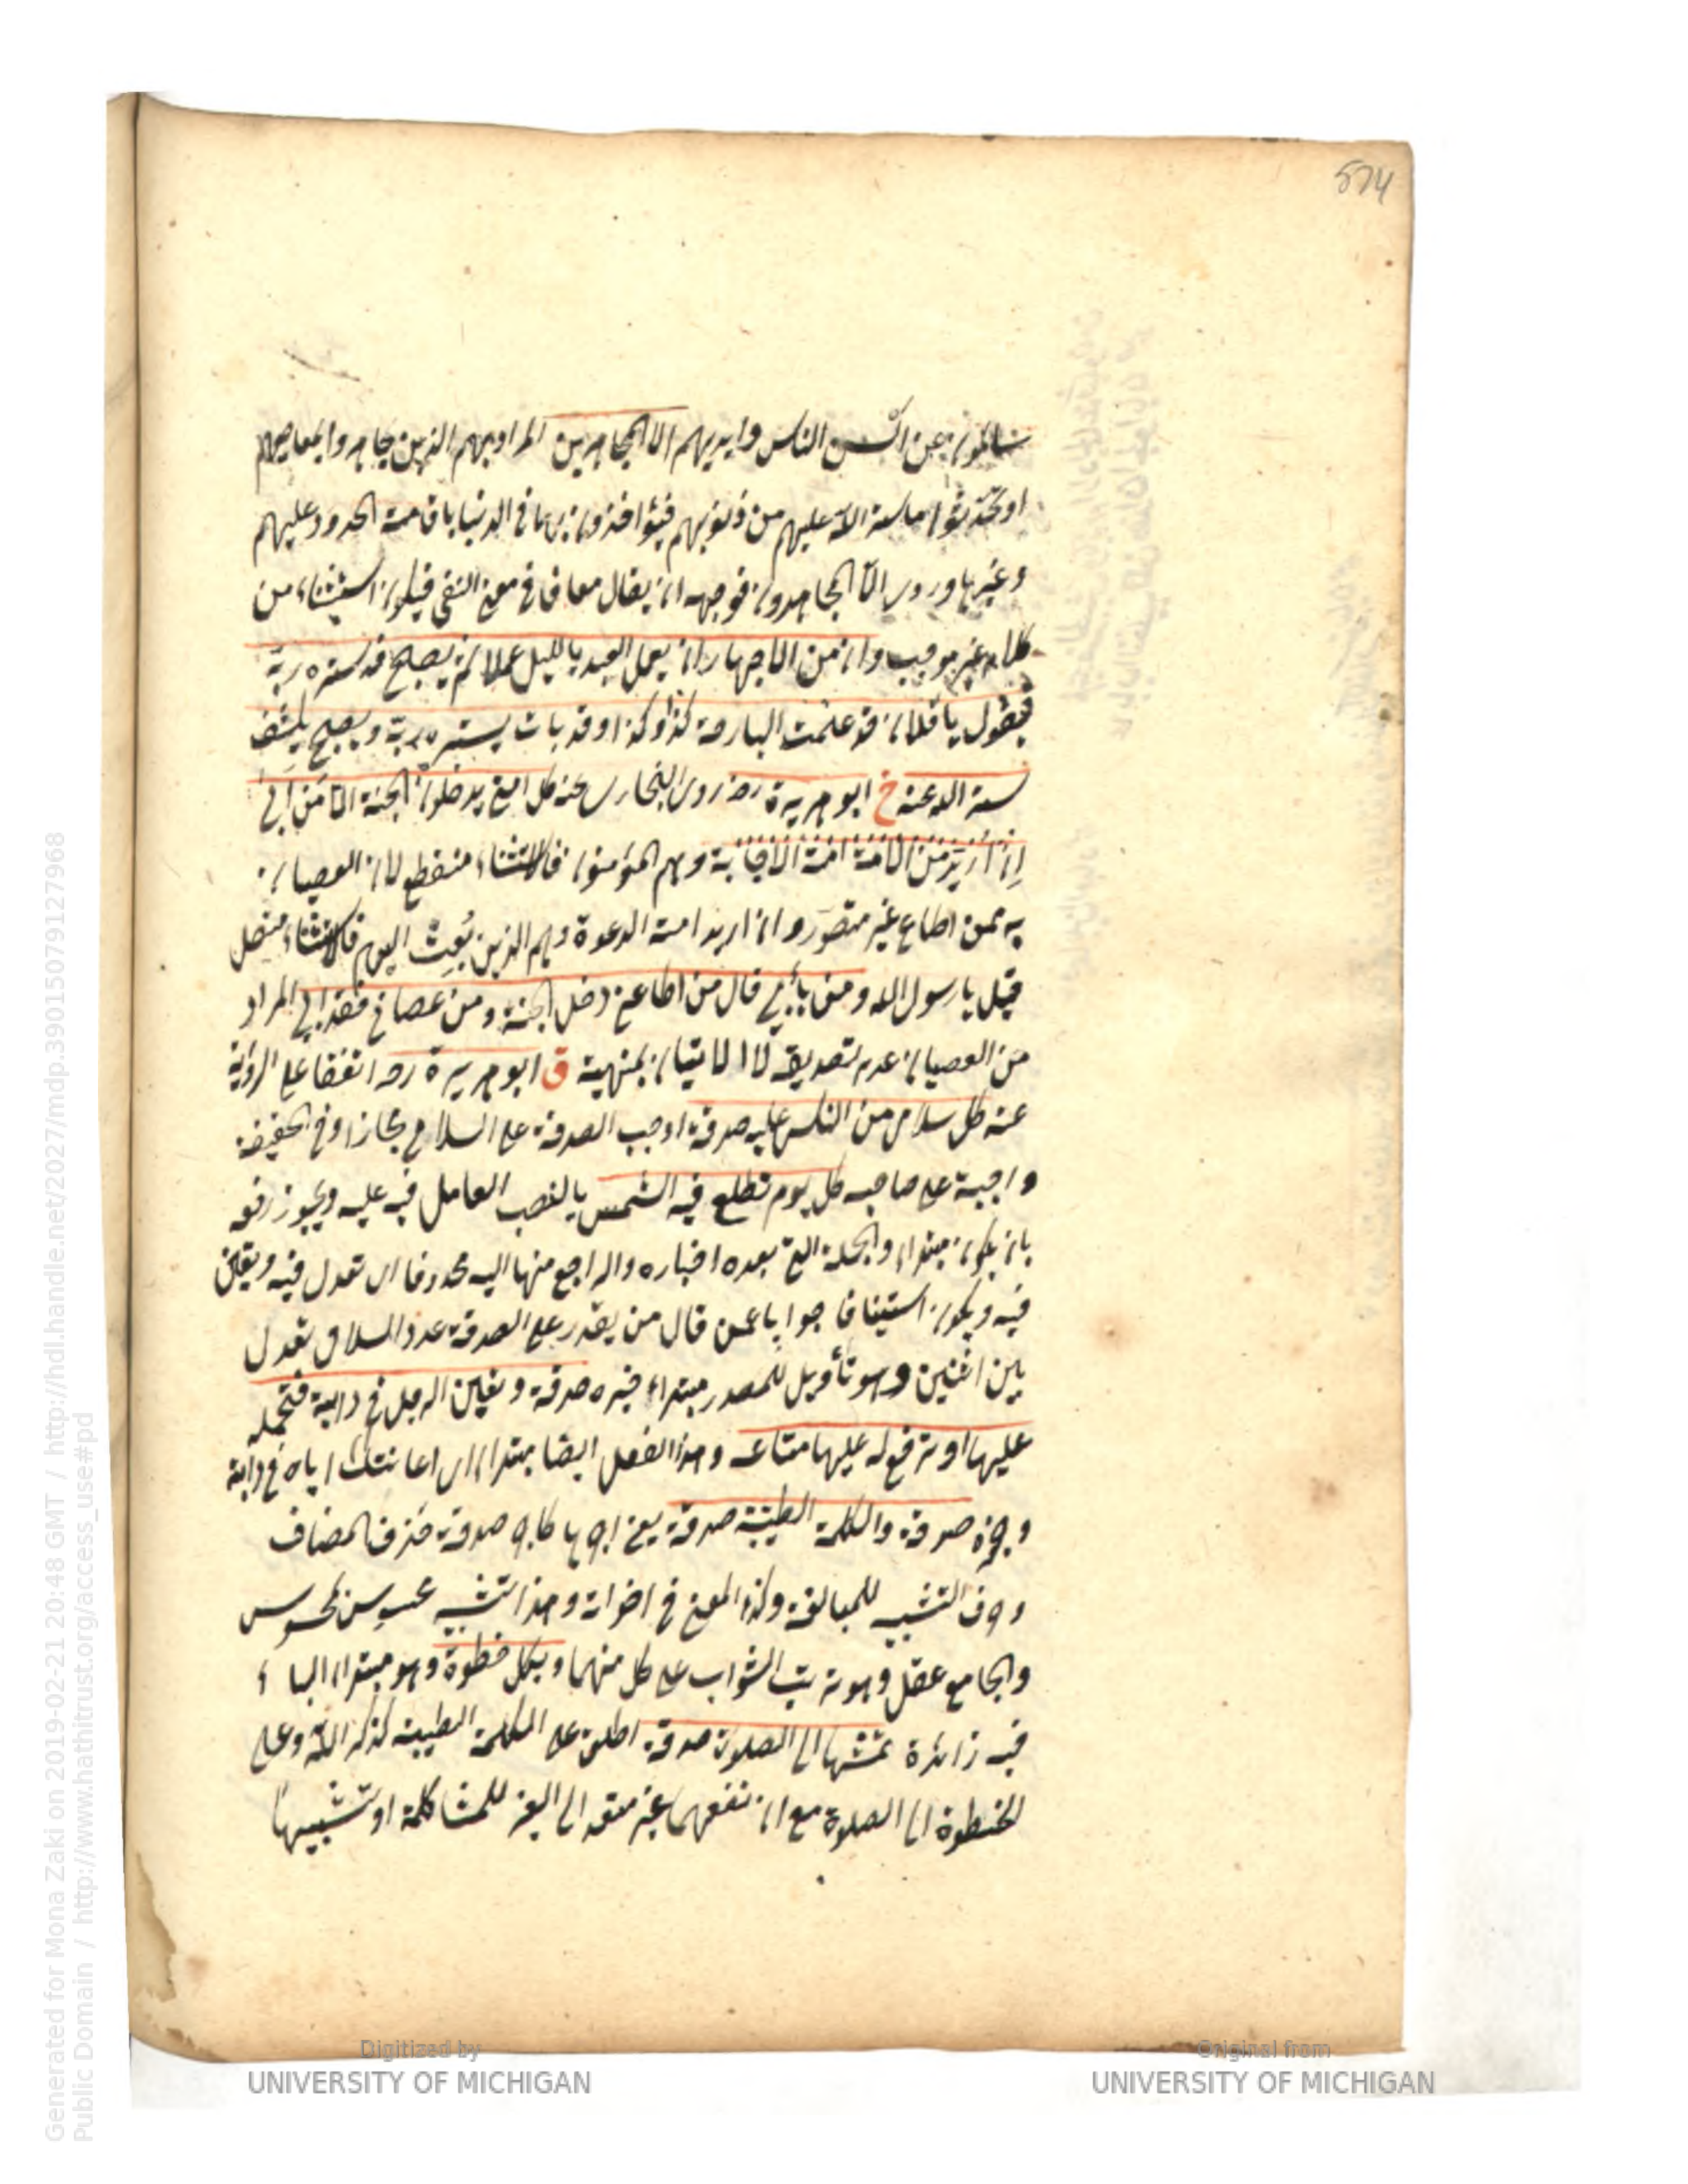 574
سالمون عن السن الناس وايديهم الا المجاهرين المراد بهم الذين جاهروا بمعاصيهم
او تحدثوا ما ستر الله عليهم من ذنوبهم فيؤاخذون بها فى الدنيا باقامة الحدود عليهم
وغيرها وروى الا المجاهرون فوجهه ان يقال معافا فى معنى النفى فيكون استثناء من
كلام غير موجب وان من الاجهار ان يعمل العبد بالليل عملا ثم يصبح قد ستره ربه
فيقول يا فلان قد عملت البارحة كذا وكذا وقد بات يستره ربه ويصبح يكشف
ستر الله عنه خ ابو هريرة رضـ روى البخارى عنه كل امتى يدخلون الجنة الا من ابى
ان اريد من الامة امة الاجابة وهم المؤمنون فالاستثناء منقطع لان العصيان
به ممن اطاع غير متصور وان اريد امة الدعوة وهم الذين بعث اليهم فالاستثناء متصل
قيل يا رسول الله ومن يأبى قال من اطاعنى دخل الجنة ومن عصانى فقد ابى المراد
من العصيان عدم تصديقه لا الاتيان بمنهيه ق ابو هريرة رضـ اتفقا على الرواية
عنه كل سلامى من الناس عليه صدقة اوجب الصدقة على السلامى مجازا وفى الحقيقة
واجبة على صاحبه كل يوم تطلع فيه الشمس بالنصب العامل فيه عليه ويجوز رفعه
بان يكون مبتداء والجملة التى بعده اخباره والراجع منها اليه محذوفا اى تعدل فيه وتعين
فيه ويكون استينافا جوابا عمن قال من يقدر على الصدقة عدد السلامى تعدل
بين اثنين وهو تأويل للمصدر مبتداء خبره صدقة وتعين الرجل فى دابته فتحمله
عليها او ترفع له عليها متاعه وهذا الفعل ايضا مبتداء اى اعانتك اياه فى دابته
صدقة والكلمة الطيبة صدقة يعنى اجرها كاجر صدقة فحذف المضاف
وحرف التشبيه للمبالغة وكذا المعنى فى اخواته وهذا تشبيه محسوس
والجامع عقلى وهو ترتب الثواب على كل منهما وبكل خطوة وهو مبتداء الباء
فيه زائدة تمشيها الى الصلوة صدقة اطلق على الكلمة الطيبة كذكر الله وعلى
الخطوة الى الصلوة مع ان نفعهما غير متعد الى الغير للمشاكلة او تشبيها
Generated for Mona Zaki on 2019-02-21 20:48 GMT / http://hdl.handle.net/2027/mdp.39015079127968
Public Domain / http://www.hathitrust.org/access_use#pd
Digitized by
UNIVERSITY OF MICHIGAN
Original from
UNIVERSITY OF MICHIGAN